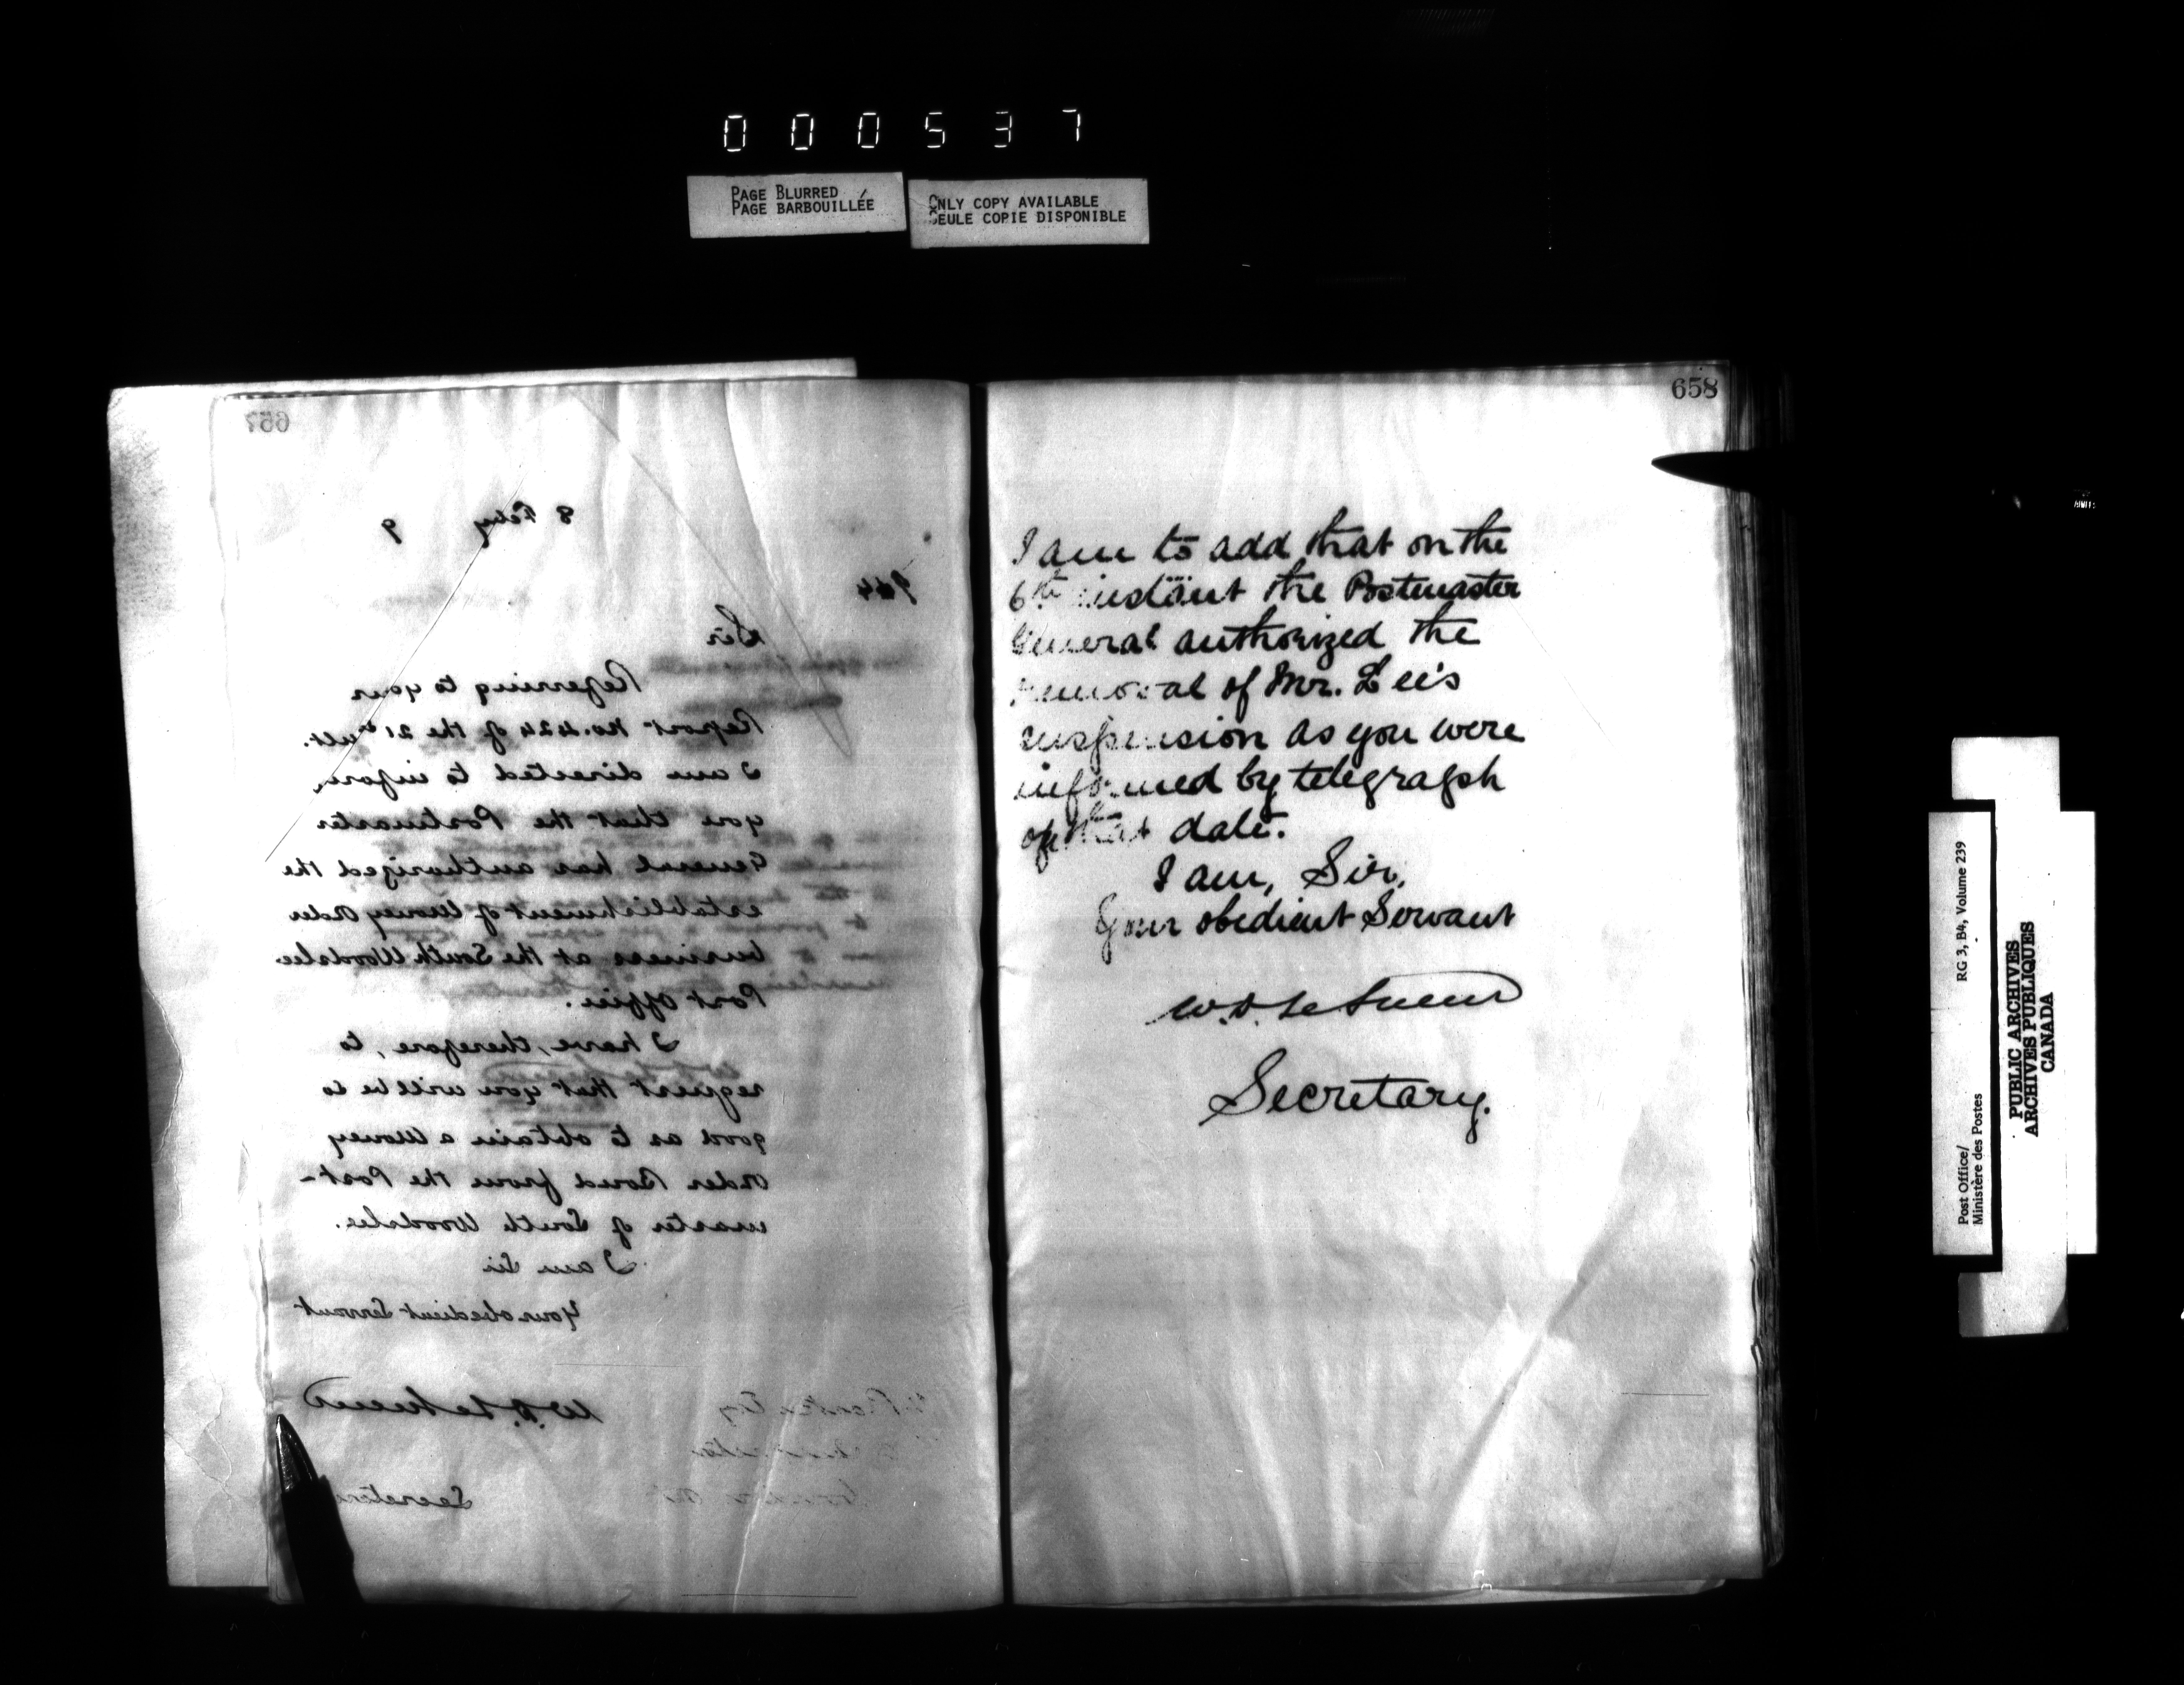 000537
PAGE BLURRED
PAGE BARBOUILLÉE
ONLY COPY AVAILABLE
SEULE COPIE DISPONIBLE
657
8 Feby 9
Sir
Referring to your
Report No. 424 of the 21st ult.
I am directed to inform
you that the Postmaster
General has authorized the
establishment of Money Order
business at the South Woodslee
Post Office.
I have, therefore, to
request that you will be so
good as to obtain a Money
Order Bond from the Post-
master of South Woodslee.
I am Sir
Your obedient Servant
W.D. LeSueur
Secretary
658
I am to add that on the
6th instant the Postmaster
General authorized the
removal of Mr. Lee's
suspension as you were
informed by telegraph
of that date.
I am, Sir,
Your obedient Servant
W.D. LeSueur
Secretary.
Post Office/
Ministère des Postes
RG 3, B4, Volume 239
PUBLIC ARCHIVES
ARCHIVES PUBLIQUES
CANADA